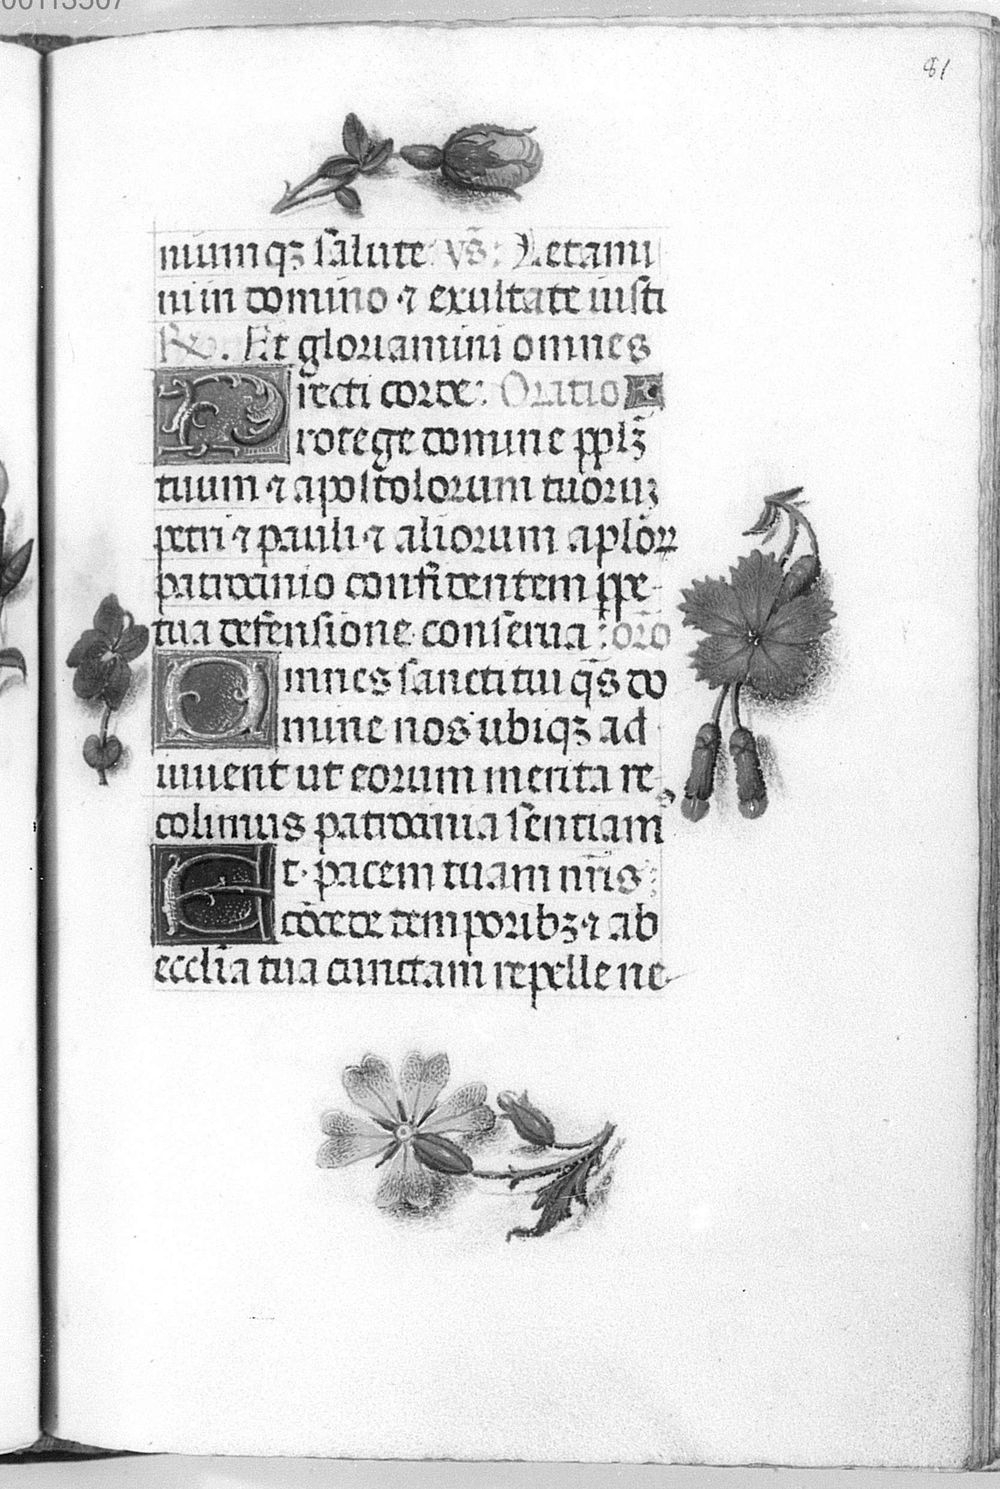 00113507
81
niumqȝ salute: vs̄: Letami
ni in domino ⁊ exultate iusti
R̷. Et gloriamini omnes
recti corde: Oratio
Protege domine pplȝ̄
tuum ⁊ apostolorum tuoruȝ
petri ⁊ pauli ⁊ aliorum aplōꝝ
patrocinio confidentem ppe-
tua defensione conserua: oro̅
Omnes sancti tui qs̄ do
mine nos ubiqȝ ad
iuuent ut eorum merita re
colimus patrocinia sentiam᷒
Et pacem tuam nr̄is
cōcede temporibȝ ⁊ ab
eccl̄ia tua cunctam repelle ne